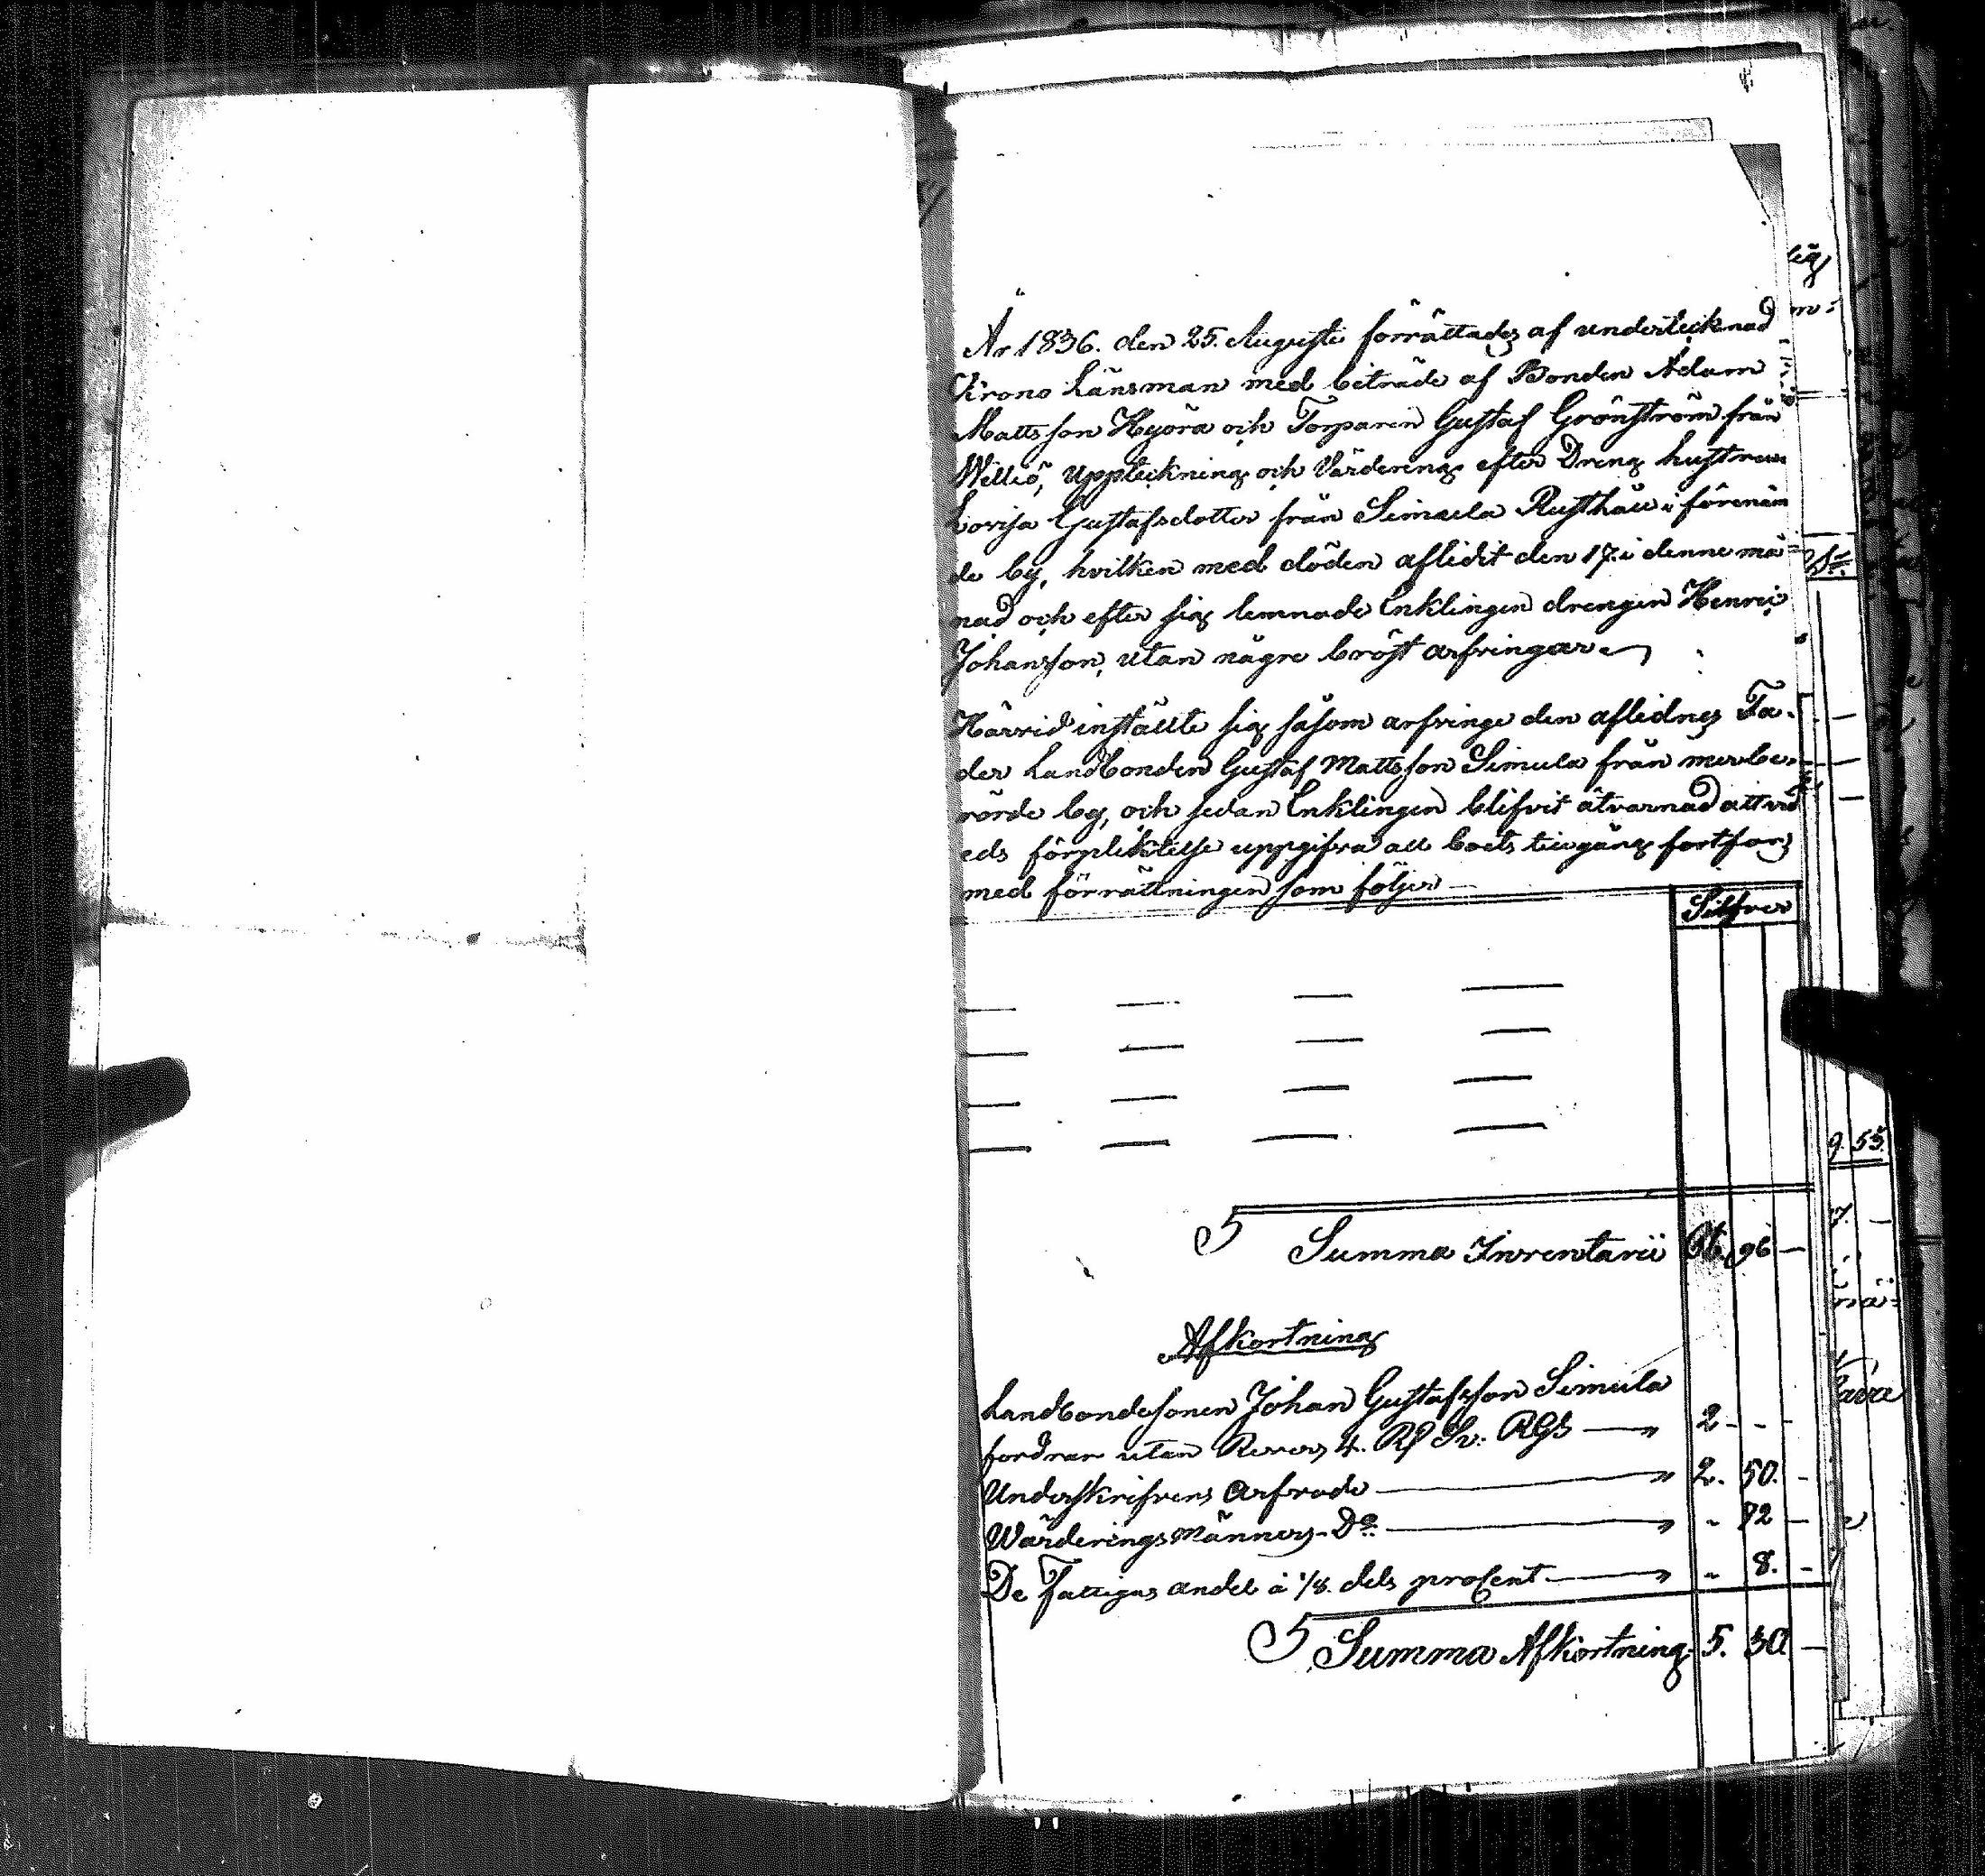 År 1836. den 25. Augusti förrättades af undertecknad
Krono Länsman med biträde af Bonden Adam
Mattsson Hyöra och Torparen Gustaf Grönström från
Williö, uppteckning och Värdering efter Dreng hustrun
Lovisa Gustafsdotter från Simula Rusthåll i förenäm
de by, hvilken med döden aflidit den 17. i denne må
nad och efter sig lemnade Enklingen drengen Henric
Johansson, utan några bröst arfvingar
Härvid inställte sig såsom arfvinge den aflidnes Fa-
der Landbonden Gustaf Mattsson Simula från merbe-
rörde by, och sedan Enklingen blifvit åtvarnad att vid
eds förpliktelse uppgifva all boets tillgång fortfors
med förrättningen som följer
Silfver
Summa Inventarii 66. 96 —
Afkortning
Landbondesonen Johan Gustafsson Simula
fordrar utan Revers 4. Rf Sv: RGS — " 2 - - -
Underskrifvens Arfvode — " 2. 50. -
Wärderingsmännens Do — " - 72 —
De Fattigas andel à 1/8. dels procent — " - 8. -
Summa Afkortning 5. 30 —
9. 53.